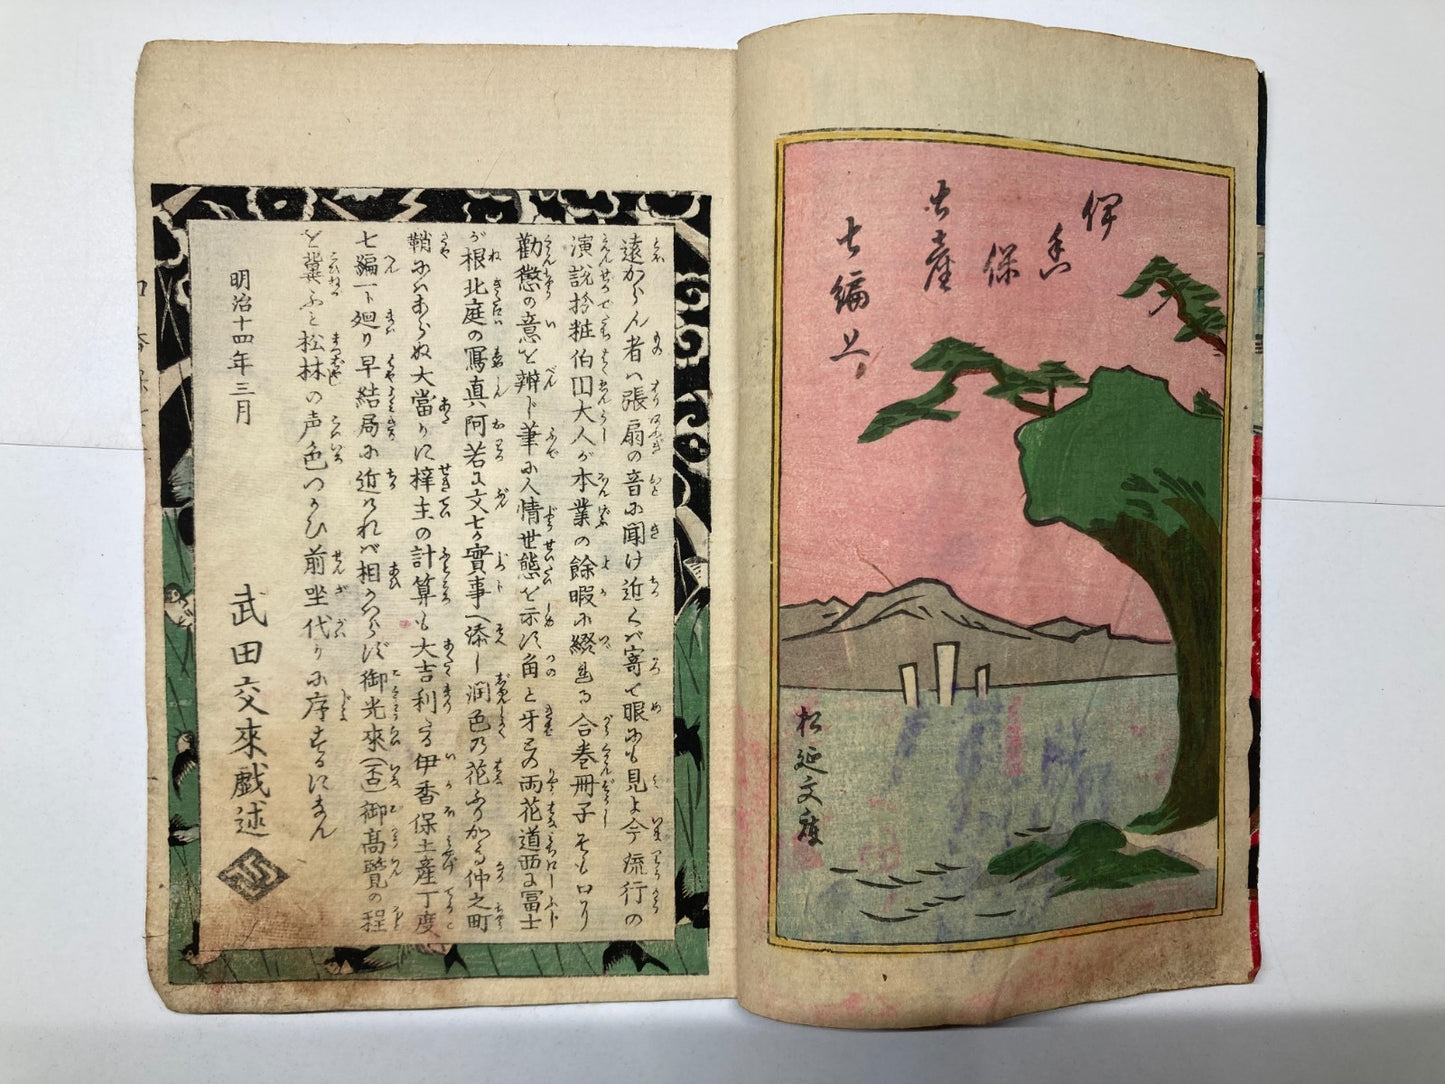 伊
香
保
土産
七編上
松延文庫
遠からん者ハ張扇の音に聞け近くバ寄て眼にも見よ今流行の
演説扮粧伯円大人が本業の餘暇に綴れる合巻冊子そも口りり
勸懲の意を辨じ筆に人情世態を示す角と牙との両花道西に冨士
が根北庭の寫真阿若に文七が實事へ添し潤色の花ふりかゝる仲之町
鞘にハあらぬ大當りに梓主の計算も大吉利なる伊香保土産丁度
七編一ト廻り早結局に近けれバ相かハらず御光來御高覧の程
を冀ふと松林の声色つかひ前坐代りに序するになん
明治十四年三月
武田交來戯述